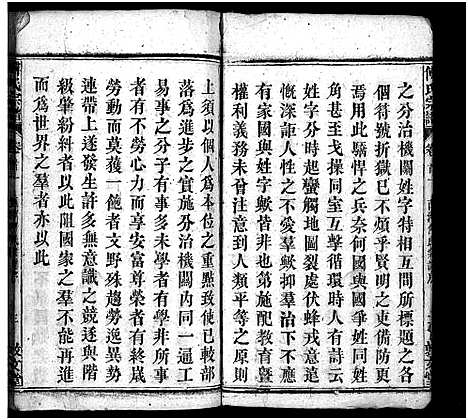 之分治機關姓字特一個人所標題之各
個符號折獄已不煩子路之片言備防更
焉用此驍悍之兵奈何因界限過明主賓
角甚至戈操同室互擊循環時人有衷於
姓字分時起蠻觸地圖裂處伏蜂戎意這
有家國與姓字厭皆非也第施配教育以
不善之因斯生人心不愛羣之惡果於是
權利義務未嘗注意與人類平等之原則
上須以個人爲本位之重點致使已較部
落爲進步之實施分治機關內同一通工
易事之分子有事多未學者有學非所事
者有不勞心力而享安富尊榮者有終歲
勞動而莫獲一飽者文野殊趨勞逸異勢
連帶上遂發生許多無意識之競逐與階
級肇紛料者此阻國家之羣不能進
而爲世界之羣者亦以此